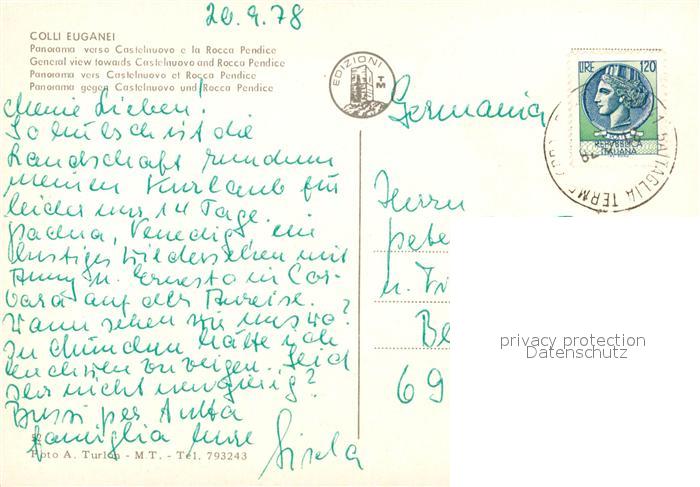 20.9.78
COLLI EUGANEI
Panorama verso Castelnuovo e la Rocca Pendice
General view towards Castelnuovo and Rocca Pendice
Panorama vers Castelnuovo et Rocca Pendice
Panorama gegen Castelnuovo und Rocca Pendice
EDIZIONI
TM
LIRE 120
REPUBBLICA ITALIANA
BATTAGLIA TERME
Meine Lieben!
So hübsch ist die
Landschaft rundum
meinen Kurlaub für
leider nur 14 Tage.
Padua, Venedig, ein
lustiges Wiedersehen mit
Anny u. Ernesto in Cor-
vara auf der Anreise.
Wann sehen wir uns wo?
In München hätte ich
zu zeigen. Seid
Ihr nicht neugierig?
Bussi per tutta
famiglia Eure
Gisela
Germania
Herrn
Pete
u. Fr
Be
69
privacy protection
Datenschutz
Foto A. Turlon - M.T. - Tel. 793243